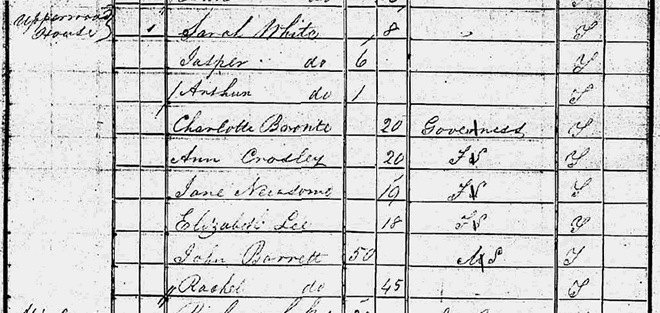 Upperwood House 1 Sarah White 8 Y
Jasper do 6 Y
Arthur do 1 Y
Charlotte Bronte 20 Governess Y
Ann Crosley 20 FS Y
Jane Newsome 19 FS Y
Elizabeth Lee 18 FS Y
John Barrett 50 MS Y
Rachel do 45 Y